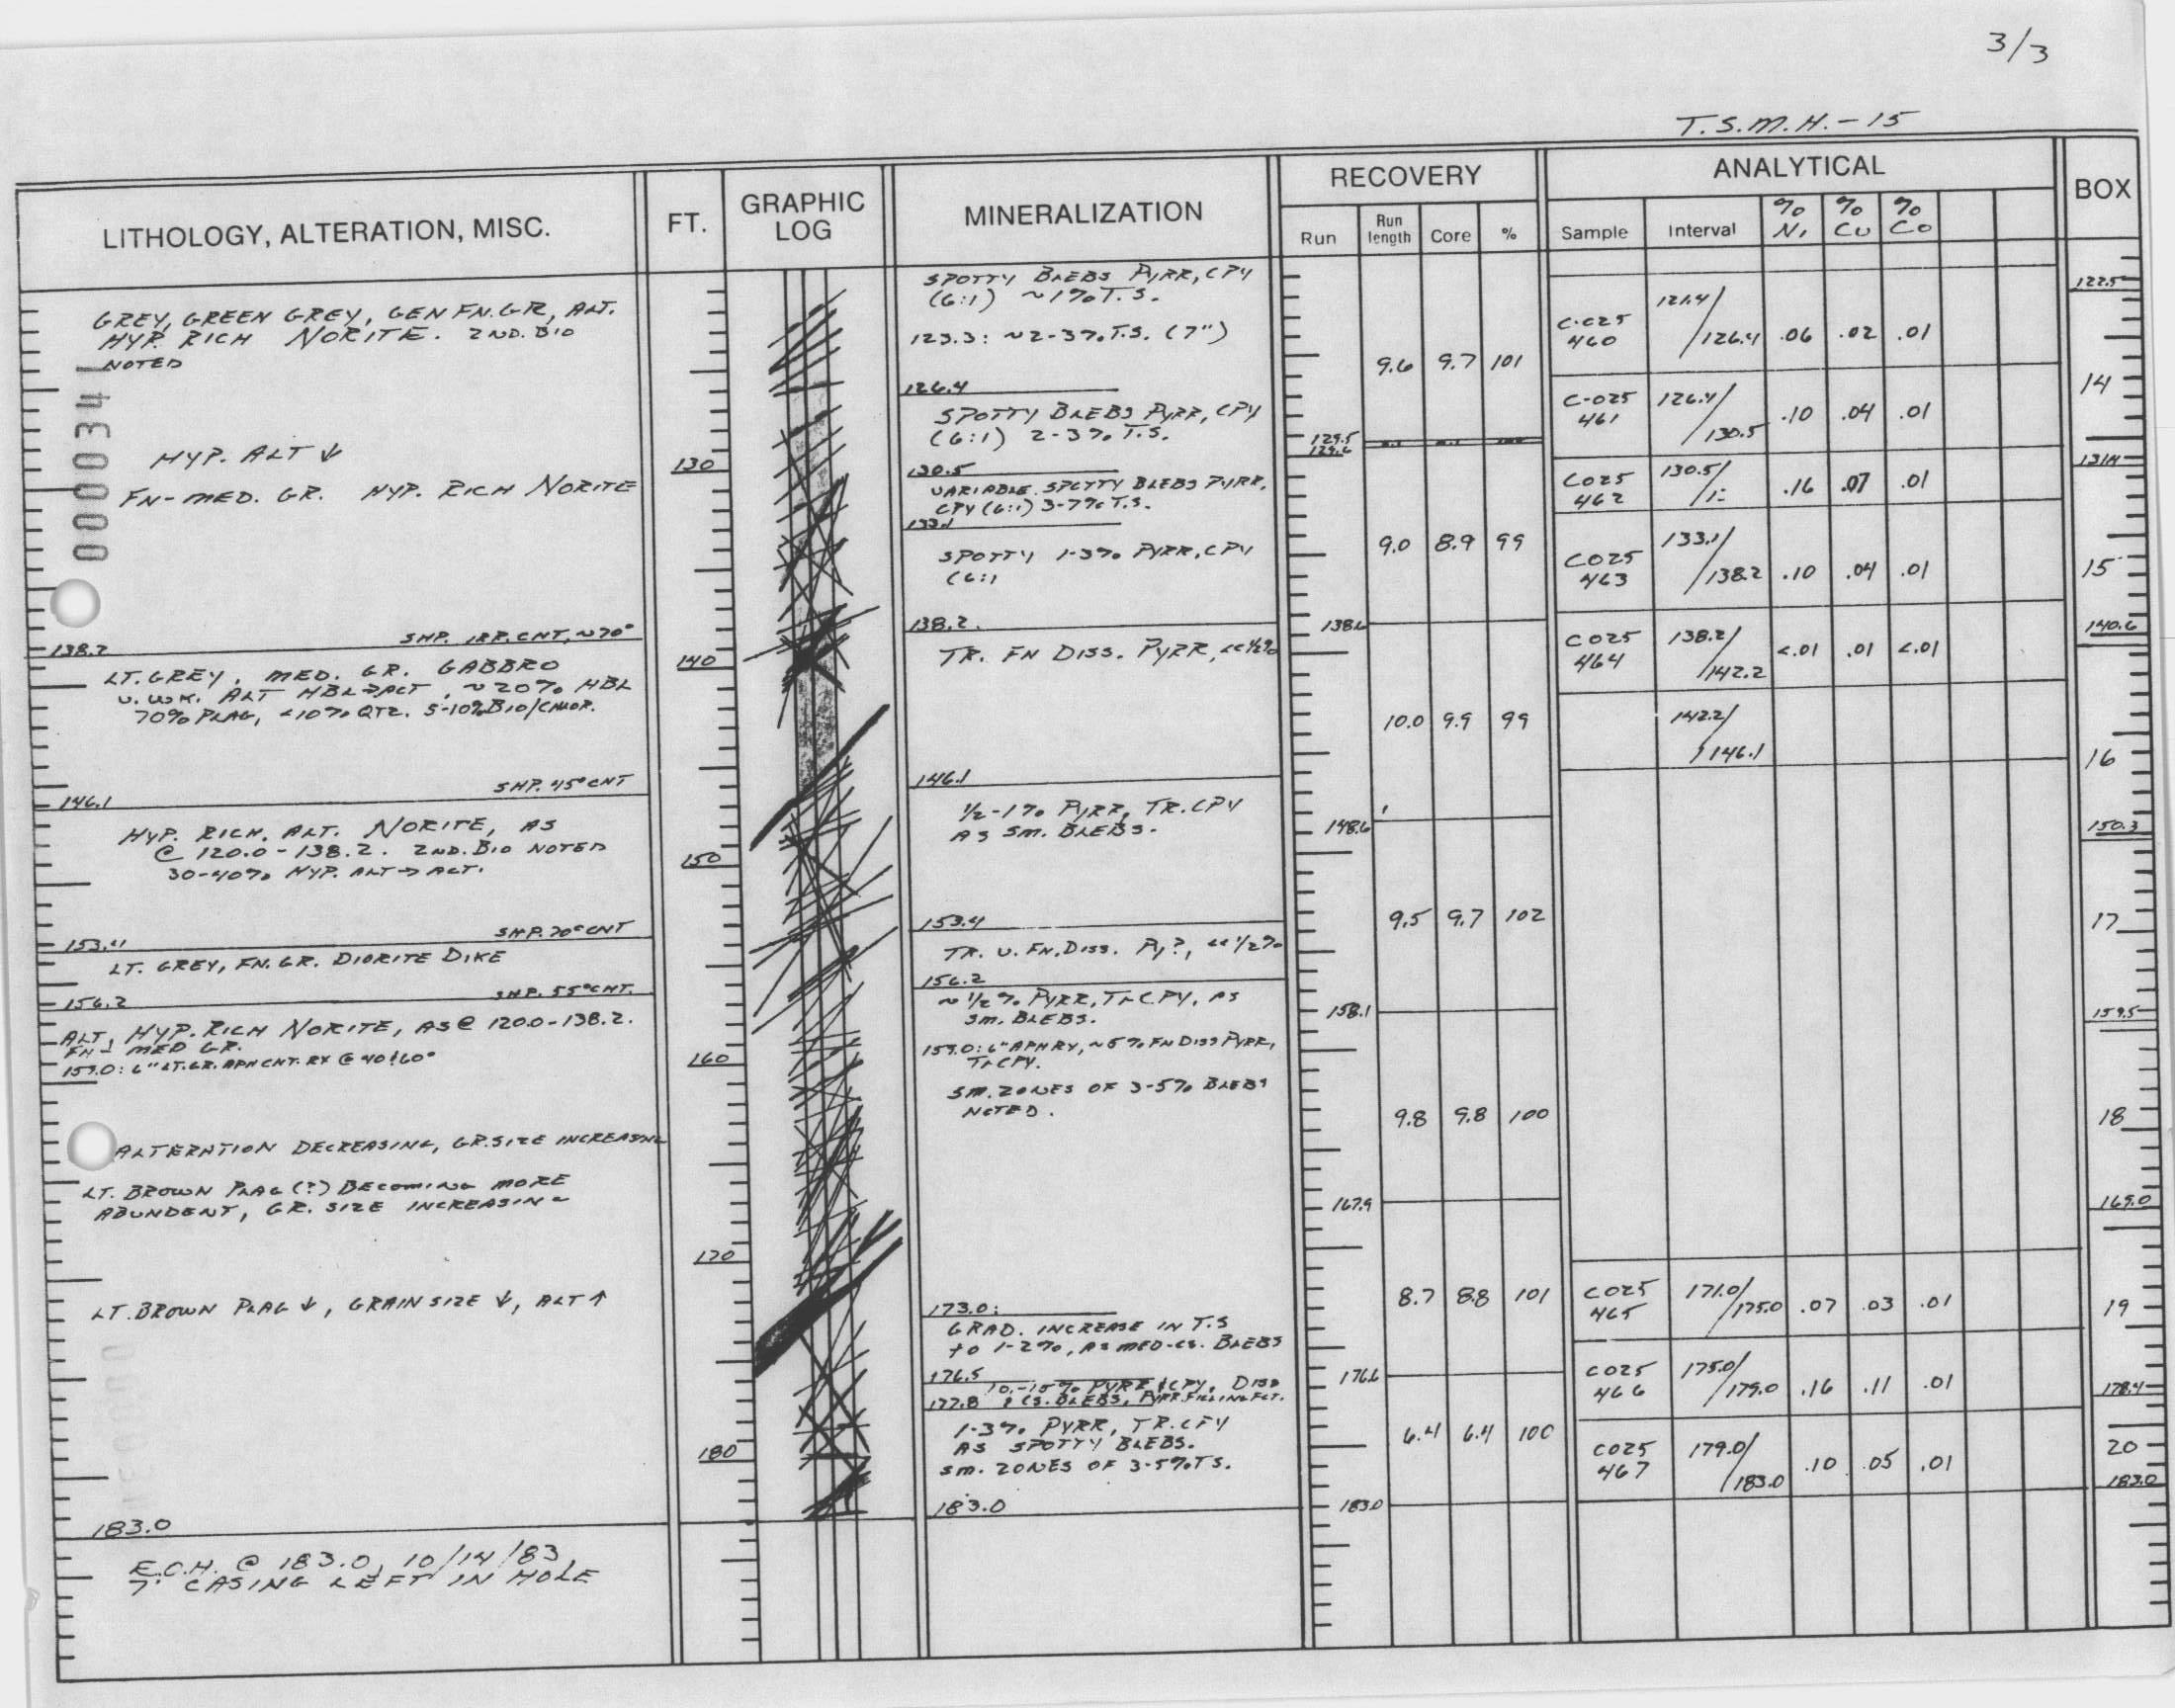 3/3
T.S.M.H.-15
LITHOLOGY, ALTERATION, MISC.
FT.
GRAPHIC
LOG
MINERALIZATION
RECOVERY
Run
Run
length
Core
%
ANALYTICAL
Sample
Interval
%
Ni
%
Cu
%
Co
BOX
GREY, GREEN GREY, GEN FN.GR, ALT.
HYP. RICH NORITE. 2ND. BIO
NOTED
0000341
HYP. ALT ↓
FN-MED. GR. HYP. RICH NORITE
SHP. IRR. CNT, ~70°
138.2
LT. GREY, MED. GR. GABBRO
V. WK. ALT HBL→ACT, ~20% HBL
70% PLAG, <10% QTZ. 5-10% BIO/CHLOR.
SHP. 45° CNT
146.1
HYP. RICH, ALT. NORITE, AS
@ 120.0-138.2. 2ND. BIO NOTED
30-40% HYP. ALT→ACT.
SHP. 70° CNT
153.4
LT. GREY, FN. GR. DIORITE DIKE
SHP. 55° CNT.
156.2
ALT, HYP. RICH NORITE, AS @ 120.0-138.2.
FN- MED GR.
159.0: 6" LT. GR. APH CNT. RX @ 40 & 60°
ALTERATION DECREASING, GR. SIZE INCREASING
LT. BROWN PLAG (?) BECOMING MORE
ABUNDENT, GR. SIZE INCREASING
LT. BROWN PLAG ↓, GRAIN SIZE ↓, ALT ↑
183.0
E.O.H. @ 183.0, 10/14/83
7' CASING LEFT IN HOLE
130
140
150
160
170
180
SPOTTY BLEBS PYRR, CPY
(6:1) ~1% T.S.
123.3: ~2-3% T.S. (7")
126.4
SPOTTY BLEBS PYRR, CPY
(6:1) 2-3% T.S.
130.5
VARIABLE SPOTTY BLEBS PYRR,
CPY (6:1) 3-7% T.S.
133.1
SPOTTY 1-3% PYRR, CPY
(6:1
138.2.
TR. FN DISS. PYRR, <<½%
146.1
½-1% PYRR, TR. CPY
AS SM. BLEBS.
153.4
TR. V. FN. DISS. PY?, <<1/2%
156.2
~½% PYRR, Tr CPY, AS
SM. BLEBS.
159.0: 6" APH RX, ~5% FN DISS PYRR,
Tr CPY.
SM. ZONES OF 3-5% BLEBS
NOTED.
173.0:
GRAD. INCREASE IN T.S
to 1-2%, AS MED-CS. BLEBS
176.5
10-15% PYRR & CPY, DISS
177.8 & CS. BLEBS, PYRR FILLING FCT.
1-3% PYRR, TR. CPY
AS SPOTTY BLEBS.
SM. ZONES OF 3-5% TS.
183.0
9.6 9.7 101
129.5
129.6
9.0 8.9 99
138.6
10.0 9.9 99
148.6
9.5 9.7 102
158.1
9.8 9.8 100
167.9
8.7 8.8 101
176.6
6.4 6.4 100
183.0
C-025
460 121.4/126.4 .06 .02 .01
C-025
461 126.4/130.5 .10 .04 .01
C025
462 130.5/ .16 .07 .01
C025
463 133.1/138.2 .10 .04 .01
C025
464 138.2/142.2 <.01 .01 <.01
142.2/146.1
C025
465 171.0/175.0 .07 .03 .01
C025
466 175.0/179.0 .16 .11 .01
C025
467 179.0/183.0 .10 .05 .01
122.5
14
131.4
15
140.6
16
150.3
17
159.5
18
169.0
19
178.4
20
183.0